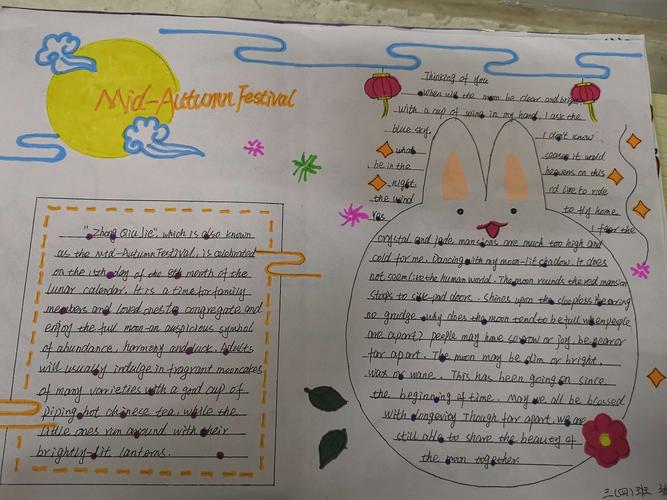 Mid-Autumn Festival
"Zhong Qiu Jie", which is also known
as the Mid-Autumn Festival, is celebrated
on the 15th day of the 8th month of the
lunar calendar. It is a time for family
members and loved ones to congregate and
enjoy the full moon-an auspicious symbol
of abundance, harmony and luck. Adults
will usually indulge in fragrant mooncakes
of many varrieties with a good cup of
piping hot chinese tea, while the
little ones run around with their
brightly-lit lanterns.
Thinking of you
When will the moon be clear and bright
with a cup of wine in my hand, I ask the
blue sky. I don't know
what season it would
be in the heavens on this
night. I'd like to ride
the wind to fly home.
Yes I fear the
crystal and jade mansions are much too high and
cold for me. Dancing with my moon-lit shadow. It does
not seem like the human world. The moon rounds the red mansion
stops to silk-pad doors. shines upon the sleepless bearing
no grudge why does the moon tend to be full when people
are apart? people may have sorrow or joy, be near or
far apart. The moon may be dim or bright.
wax or wane. This has been going on since
the beginning of time. May we all be blessed
with longevity Though far apart, we are
still able to share the beauty of
the moon together.
三(四)班